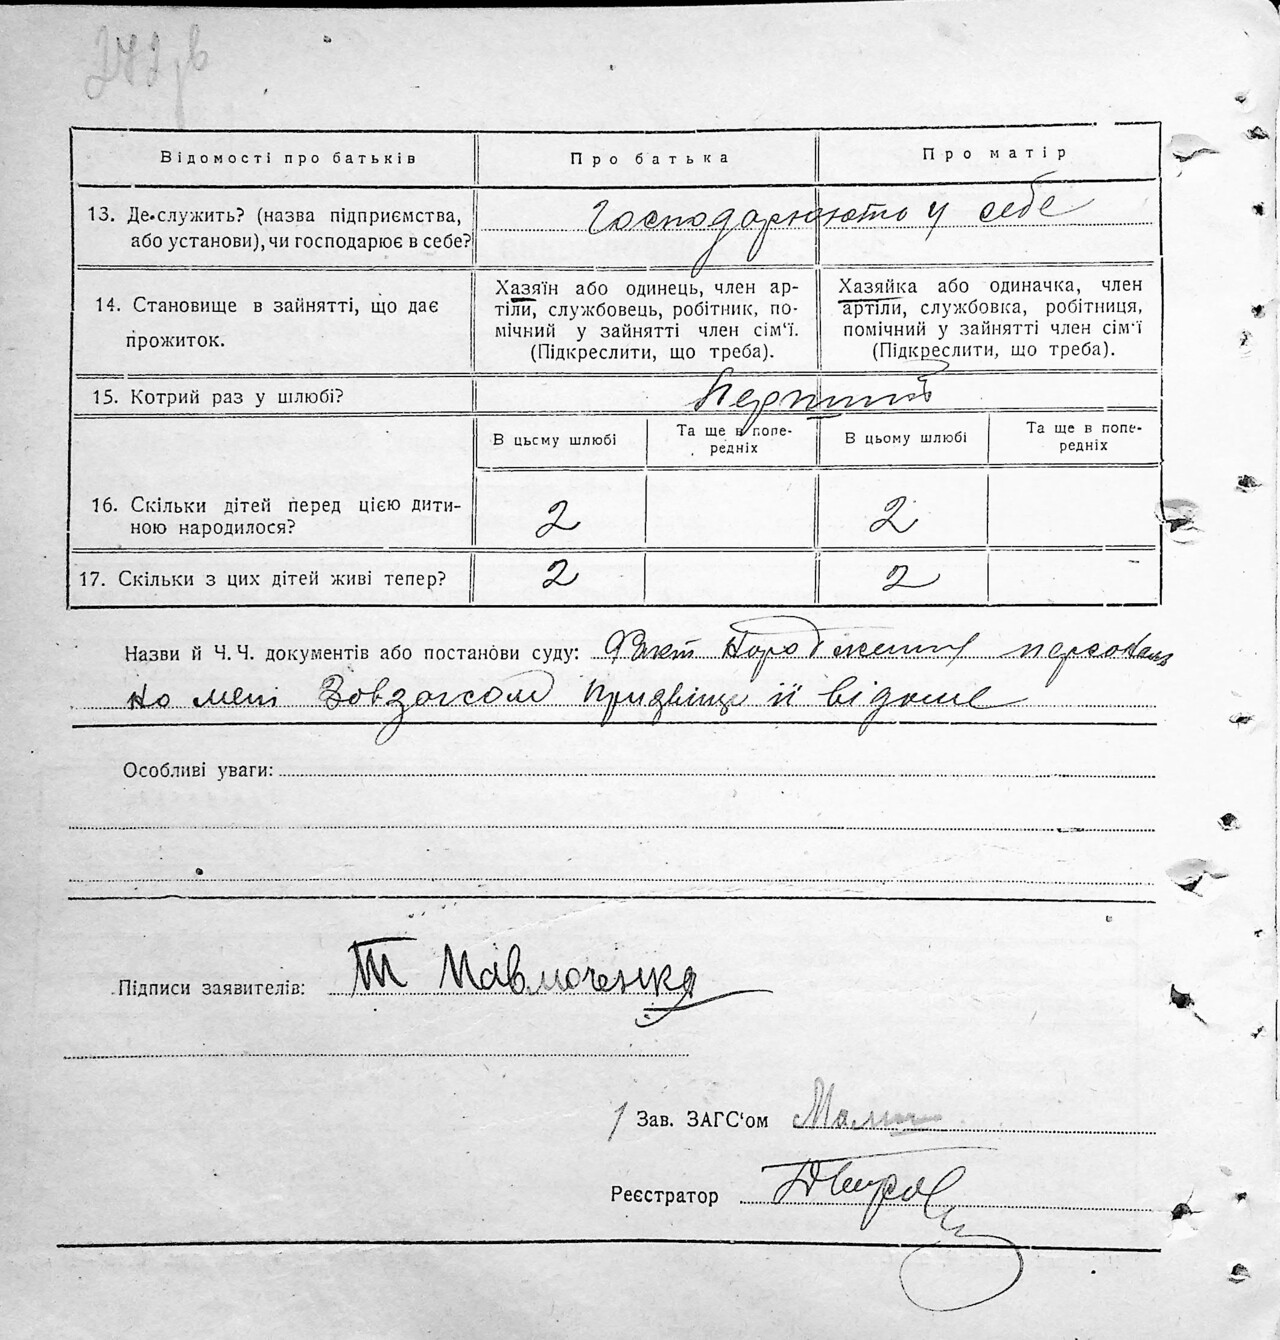 Відомості про батьків
Про батька
Про матір
13. Де служить? (назва підприємства,
або установи), чи господарює в себе?
Господарюють у себе
14. Становище в зайнятті, що дає
прожиток.
Хазяїн або одинець, член ар-
тіли, службовець, робітник, по-
мічний у зайнятті член сім'ї.
(Підкреслити, що треба).
Хазяйка або одиначка, член
артіли, службовка, робітниця,
помічний у зайнятті член сім'ї
(Підкреслити, що треба).
15. Котрий раз у шлюбі?
Перший
В цьому шлюбі
Та ще в попе-
редніх
В цьому шлюбі
Та ще в попе-
редніх
16. Скільки дітей перед цією дити-
ною народилося?
2
2
17. Скільки з цих дітей живі тепер?
2
2
Назви й Ч. Ч. документів або постанови суду: Факт народження персональ
но мені Завзагсом прізвище її відоме
Особливі уваги:
Підписи заявителів:
Зав. ЗАГС'ом
Реєстратор